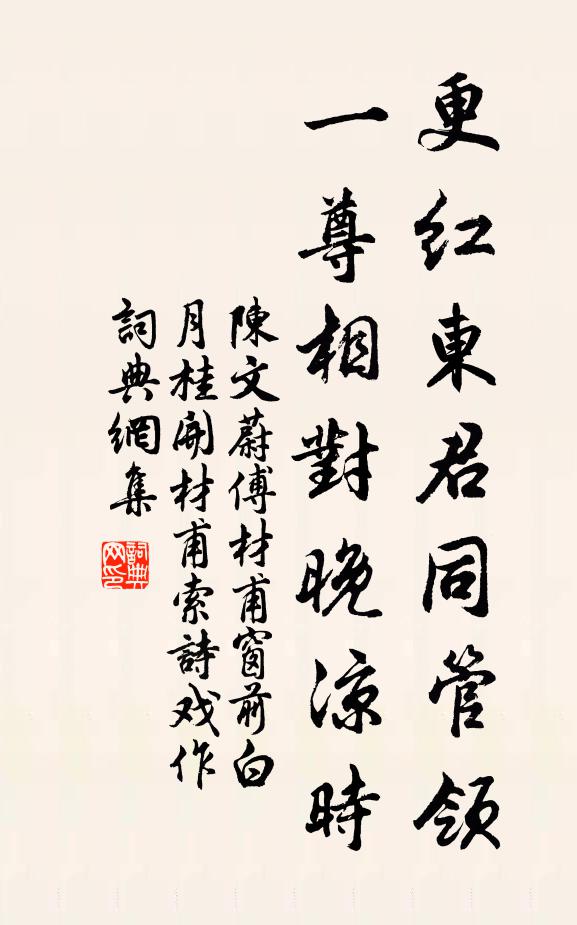 更紅東君同管領
一尊相對晚涼時
陳文蔚傅材甫窗前白
月桂開材甫索詩戏作
詞典網集
詞典网印